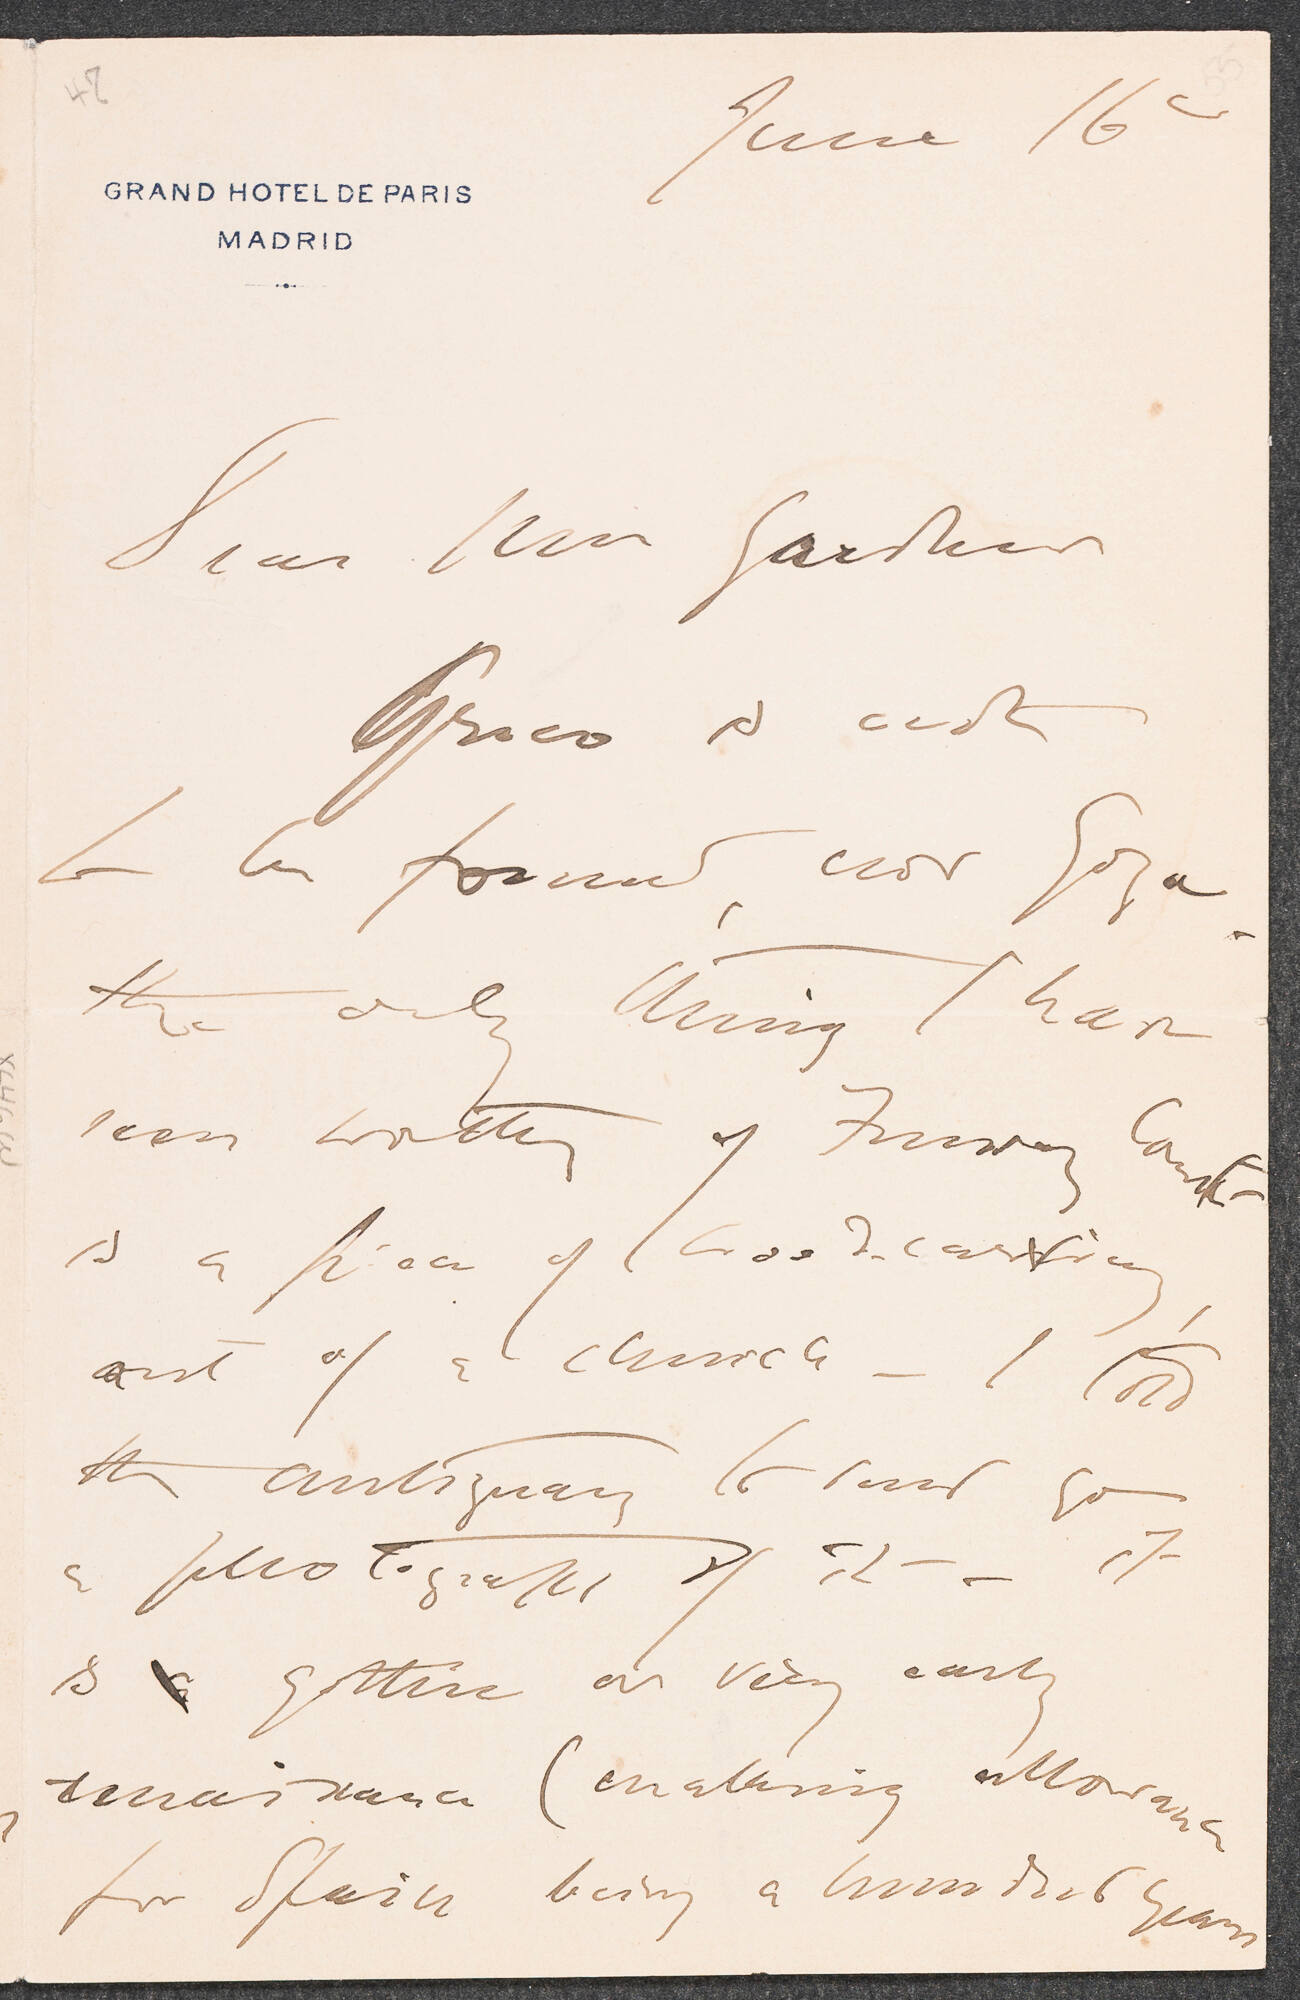 47
55
June 16
GRAND HOTEL DE PARIS
MADRID
Dear Mrs Gardner
Greco is not
to be found, nor Goya.
the only thing I have
seen worthy of Fenway Court
is a piece of wood-carving,
out of a church – I told
the antiquary to send you
a photograph of it – it
is gothic or very early
renaissance (making allowance
for Spain being a hundred years